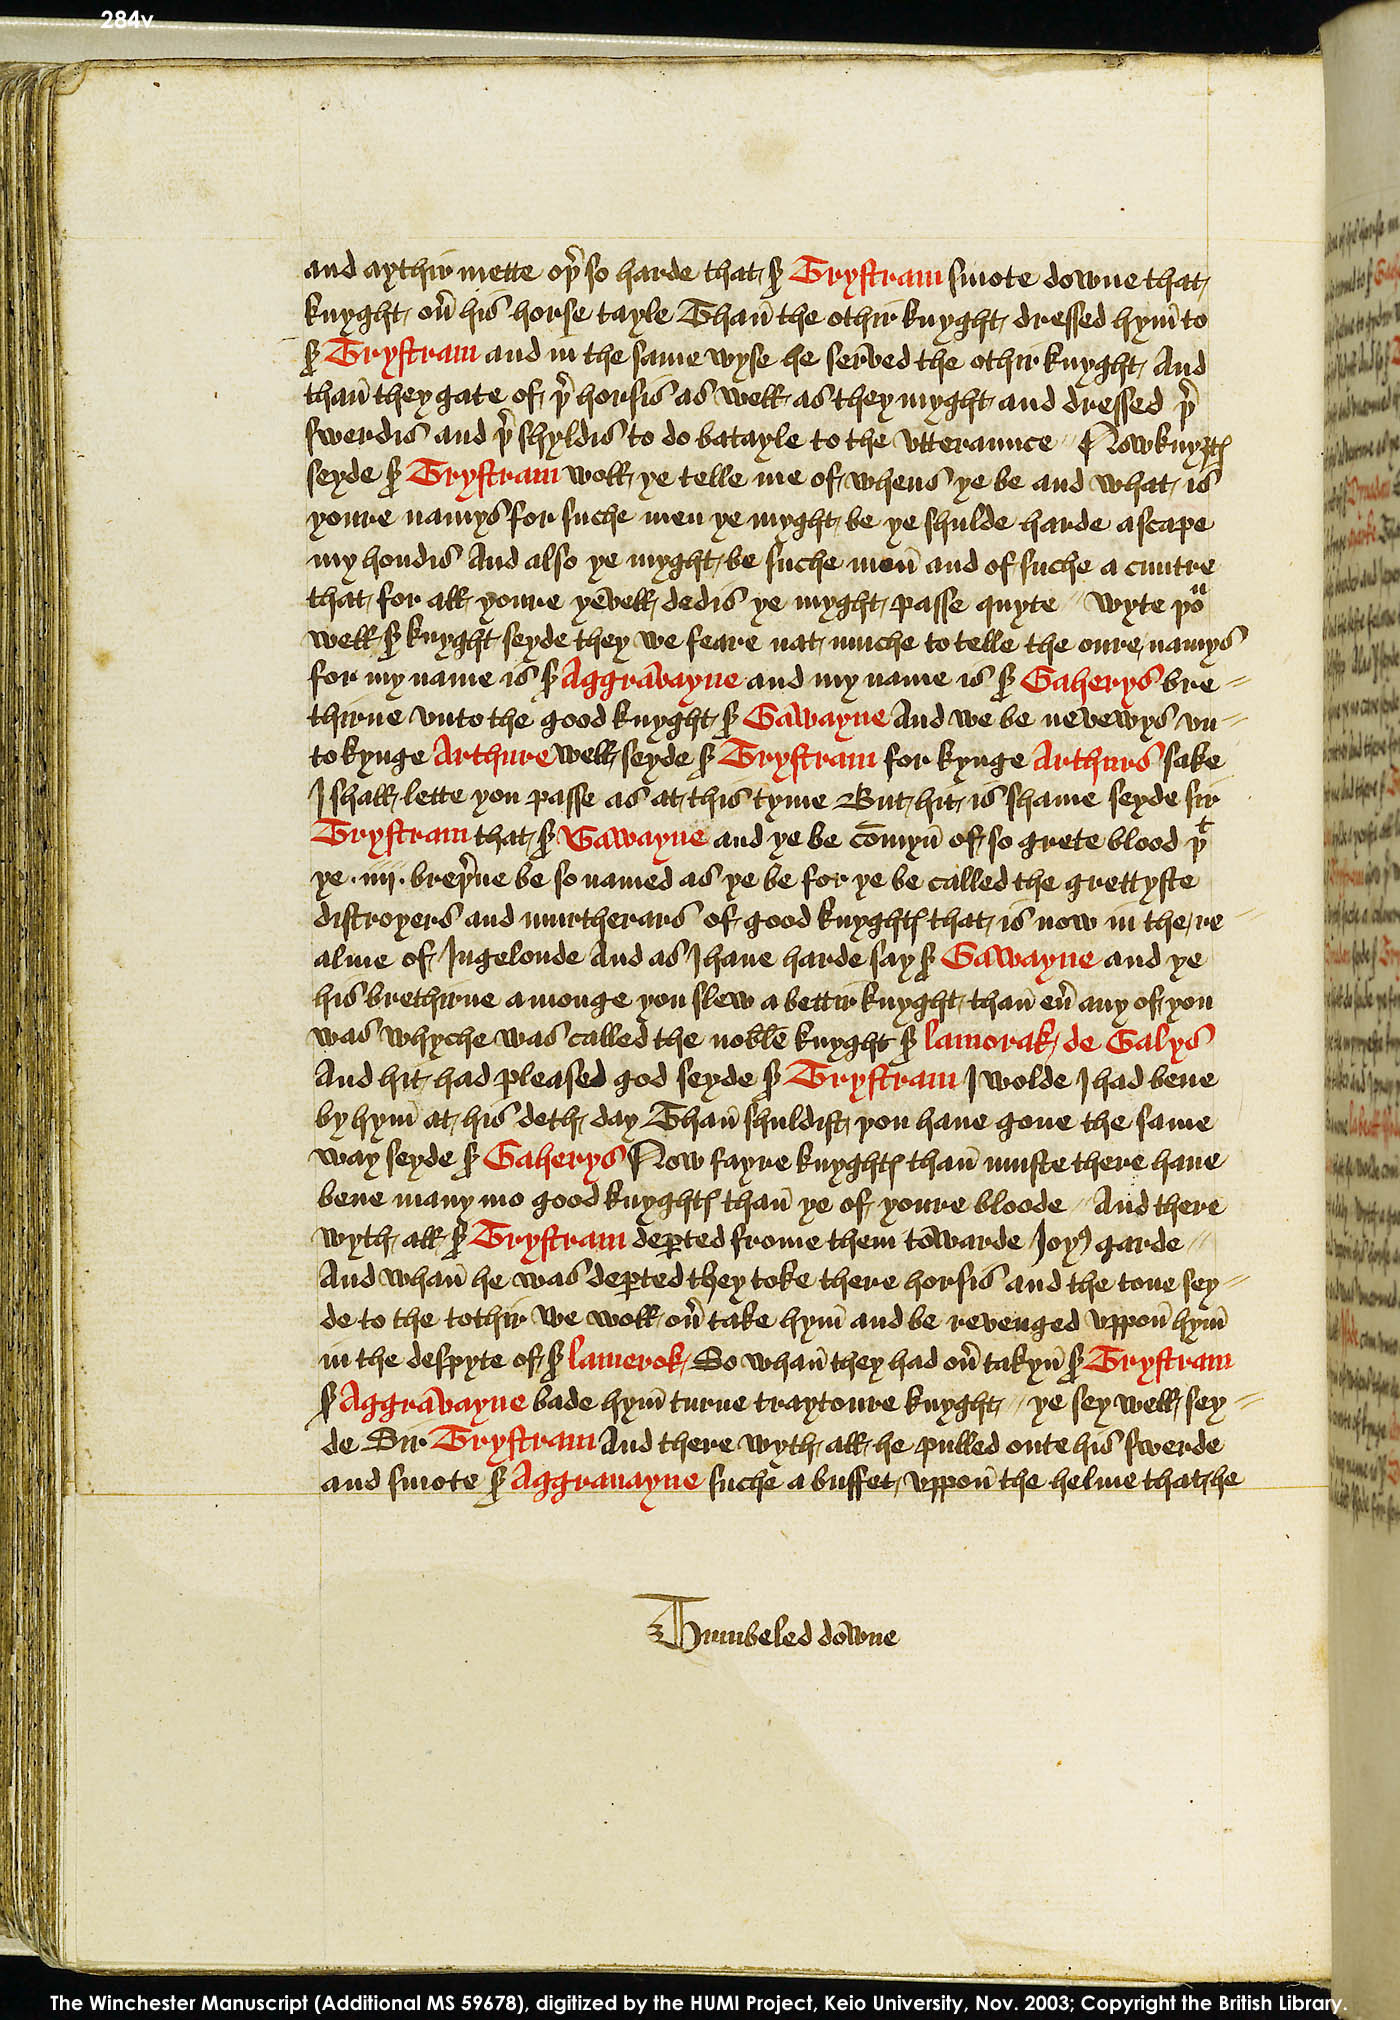 284v
and aythir mette oþͬ so harde that sͬ Trystram smote downe that
knyght on̄ his horse tayle Than̄ the othir knyght dressed hym̄ to
sͬ Trystram and in the same wyse he serūed the othir knyght And
than̄ they gate of þͬ horsis as well as they myght and dressed þͬ
swerdis and þͬ shyldis to do batayle to the vtteraunce // Now knyȝtꝭ
seyde sͬ Trystram woll ye telle me of whens ye be and what is
youre namys for suche men ye myght be ye shulde harde ascape
my hondis And also ye myght be suche men̄ and of suche a cuntre
that for all youre yēvell dedis ye myght passe quyte // wyte yoͧ
well sͬ knyght seyde they we feare nat muche to telle the oure namys
for my name is sͬ Aggrāvayne and my name is sͬ Gaherys bre=
thirne vnto the good knyght sͬ Gāwayne And we be nevewys vn=
to kynge Arthure well seyde sͬ Trystram for kynge Arthurs sake
I shall lette you passe as at this tyme But hit is shame seyde sir
Trystram that sͬ Gāwayne and ye be com̄yn̄ of so grete blood þͭ
ye .iiij. breþͬne be so named as ye be for ye be called the grettyste
distroyers and murtherars of good knyghtꝭ that is now in the re=
alme of Ingelonde And as I haue harde say sͬ Gāwayne and ye
his brethirne amonge you slew a bettir knyght than̄ eūͬ any of you
was whyche was called the noble knyght sͬ lamorak de Galys
And hit had pleased god seyde sͬ Trystram I wolde I had bene
by hym̄ at his deth day Than̄ shuldist you haue gone the same
way seyde sͬ Gaherys Now fayre knyghtꝭ than̄ muste there haue
bene many mo good knyghtꝭ than̄ ye of youre bloode // And there
wyth all sͬ Trystram deꝑted frome them tōwarde Ioyꝰ garde //
And whan̄ he was deꝑted they toke there horsis and the tone sey=
de to the tothir we woll oūͬ take hym̄ and be revenged vppon̄ hym̄
in the despyte of sͬ lamerok So whan̄ they had oūͬ takyn̄ sͬ Trystram
sͬ Aggrāvayne bade hym̄ turne traytoure knyght // ye sey well sey=
de Sir Trystram And there wyth all he pulled oute his swerde
and smote sͬ Aggrauayne suche a buffet vppon̄ the helme that he
Tumbeled dōwne
The Winchester Manuscript (Additional MS 59678), digitized by the HUMI Project, Keio University, Nov. 2003; Copyright the British Library.